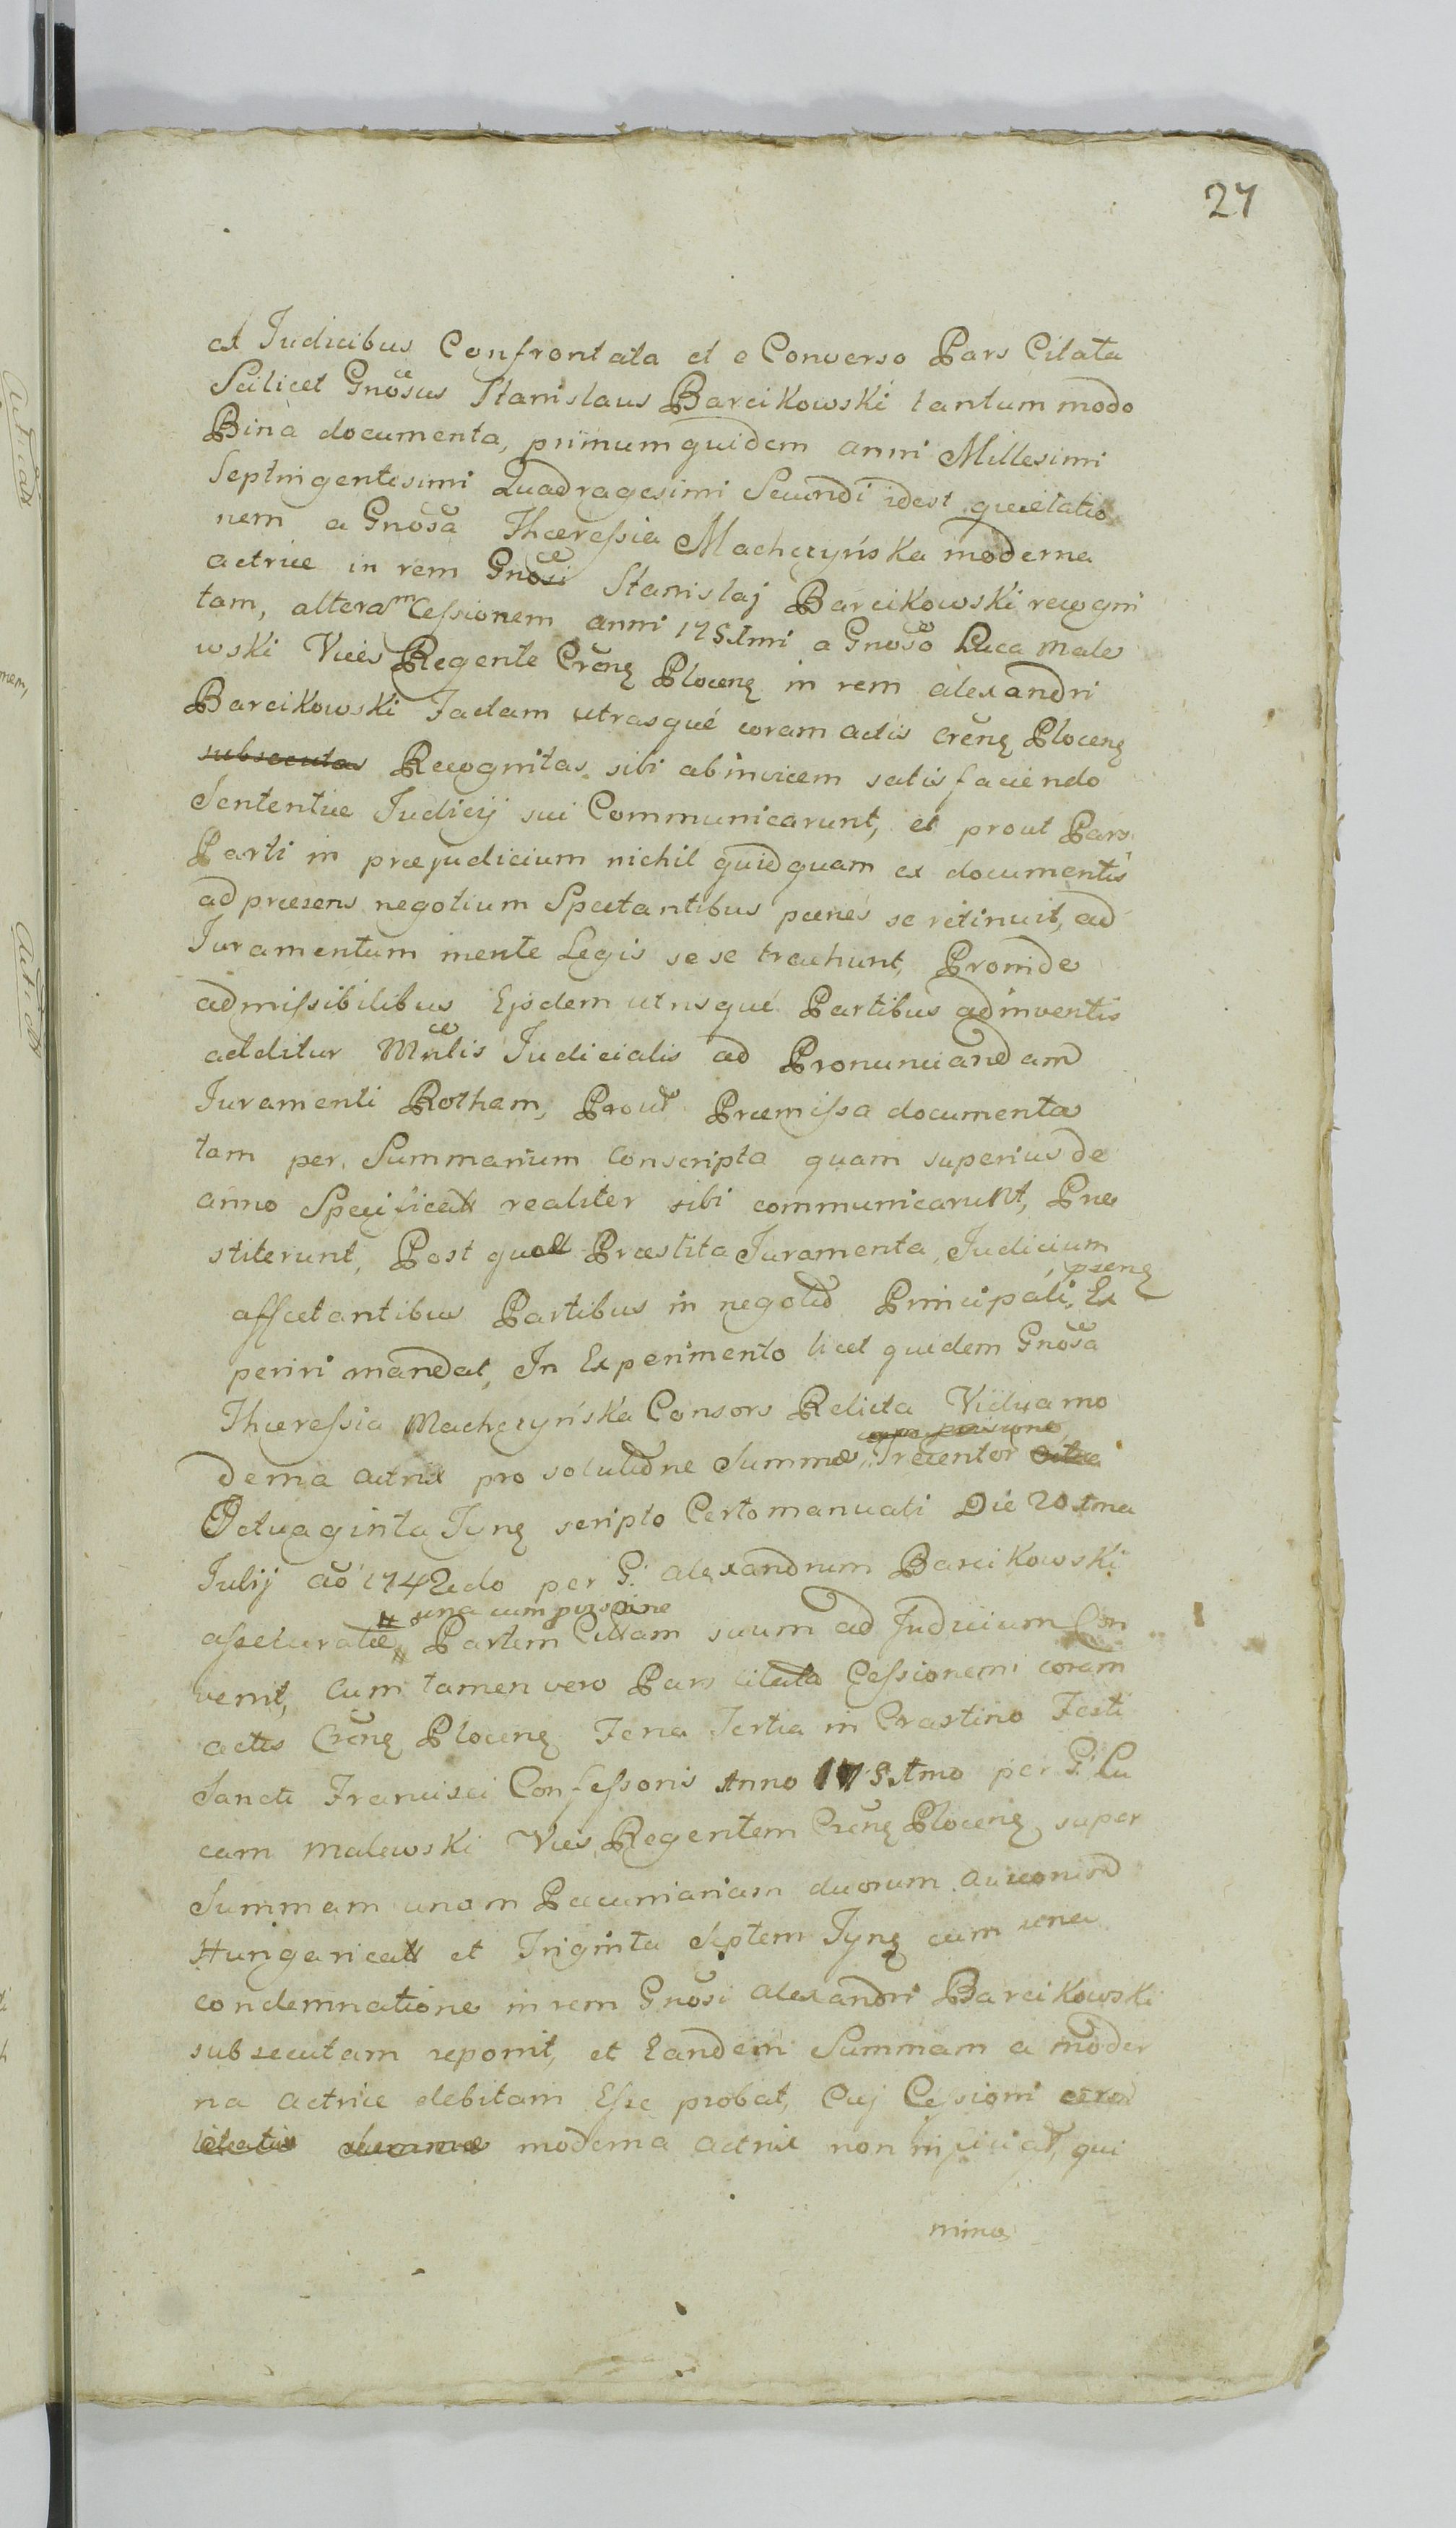 27
et Iudicibus Confrontata et e Converso Pars Citata
Scilicet Gnosus Stanislaus Barcikowski tantum modo
Bina documenta, primum quidem anni Millesimi
Septingentesimi Quadragesimi Secundi idest quietatio
nem a Gnosa Thæressia Machczyńska moderna
actrice in rem Gnosi Stanislaj Barcikowski recogni
tam, alteram Cessionem anni a Gnoso Luca Male
wski Vices Regente Crĕnꝫ Plocenꝫ in rem alexandri
Barcikowski Factam utrasque coram actis crĕnꝫ Plocenꝫ
subsecutas Recognitas sibi abinvicem satisfaciendo
Sententiæ Iudicij sui Communicarunt, et prout Pars
Parti in præjudicium nichil quidquam ex documentis
ad præsens negotium Spectantibus pænes se retinuit, ad
Iuramentum mente Legis sese trachunt, Proinde
admissibilibus Ejsdem utrisque Partibus adinventis
additur Mnlis Iudicialis ad Pronunciandam
Iuramenti Rotham, Prout Præmissa documenta
tam per Summarium conscripta quam superius de
anno Specificata realiter sibi communicarunt, Præ
stiterunt, Post quæ Præstita Iuramenta, Iudicium
psenꝫ
affectantibus Partibus in negotio Principali, Ex
periri mandat, In Experimento licet quidem Gnosa
Thæressia Machczyńska Consors Relicta Vidua mo
derna actrix pro solutione Summæ Trecentor
Octuaginta Tynꝫ scripto Certo manuali Die 20tma
Julij aō 1742do per G. alexandrum Barcikowski
una cum provisione
assecuratæ, Partem Citatam suum ad Iudicium Con
venit, Cum tamen vero Pars citata Cessionem coram
actis Crĕnꝫ Plocenꝫ Feria Tertia in Crastino Festi
Sancti Francisci Confessoris Anno per G. Lu
cam Malewski Vices Regentem Crĕnꝫ Plocenꝫ super
Summam unam Pecuniariam duorum
Hungaricalt et Triginta Septem Tynꝫ cum una
condemnatione in rem Gnosi alexandri Barcikowski
subsecutam reponit, et Eandem Summam a moder
na actrice debitam Esse probat, Cuj Cessioni
moderna actrix non inficiat, qui
nimo